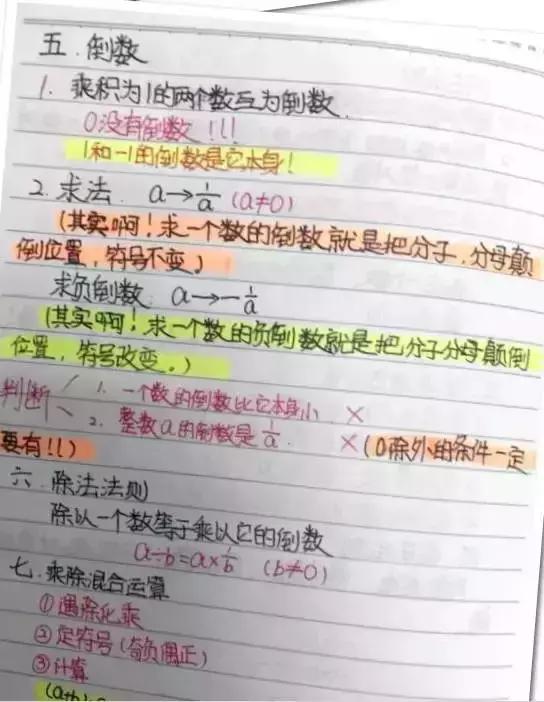 五.倒数
1. 乘积为1的两个数互为倒数.
0没有倒数!!!
1和-1的倒数是它本身!
2.求法. a→1/a (a≠0)
(其实啊!求一个数的倒数就是把分子,分母颠
倒位置,符号不变。)
求负倒数. a→-1/a
(其实啊!求一个数的负倒数就是把分子分母颠倒
位置,符号改变。)
判断 1. 一个数的倒数比它本身小 ×
2. 整数a的倒数是1/a. ×(0除外的条件一定
要有!!)
六.除法法则
除以一个数等于乘以它的倒数
a÷b=a×1/b (b≠0)
七.乘除混合运算
①遇除化乘
②定符号(奇负偶正)
③计算